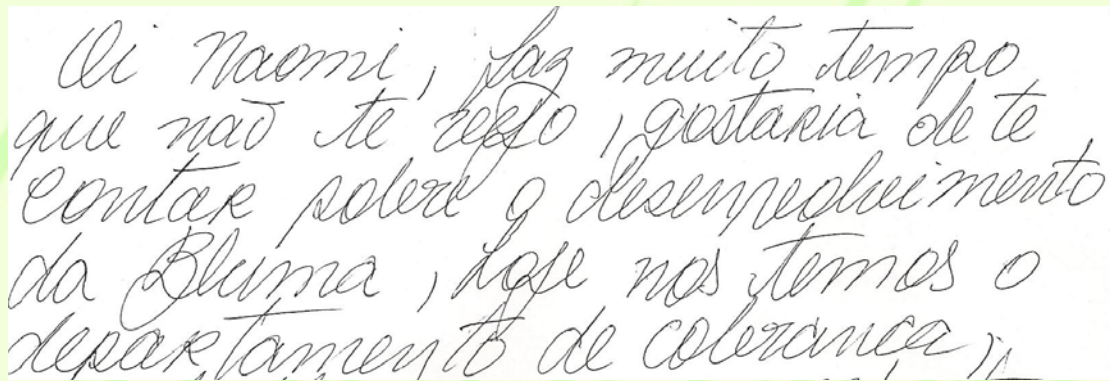 Oi Naomi, faz muito tempo
que não te vejo, gostaria de te
contar sobre o desenvolvimento
da Bluma, hoje nos temos o
departamento de cobrança,